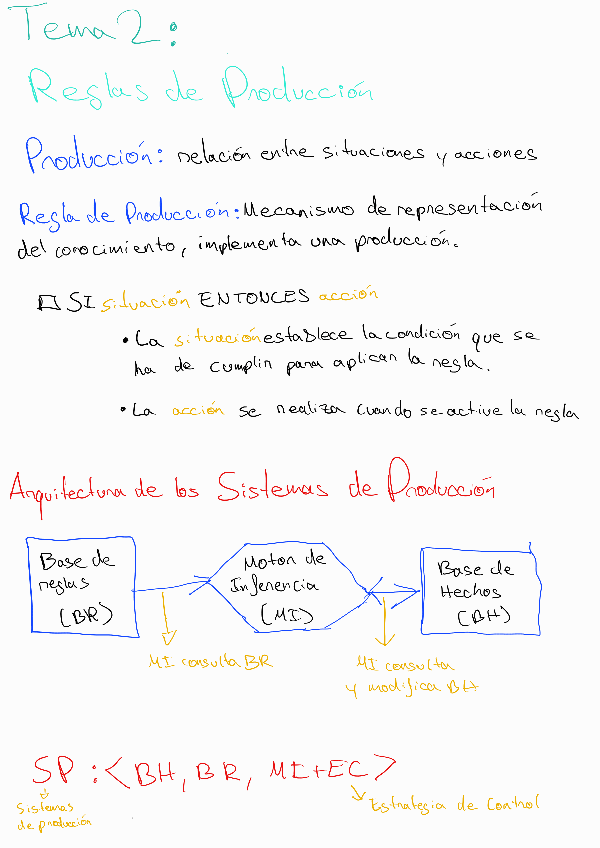 Tema 2:
Reglas de Producción
Producción: relación entre situaciones y acciones
Regla de Producción: Mecanismo de representación
del conocimiento, implementa una producción.
SI situación ENTONCES acción
• La situación establece la condición que se
ha de cumplir para aplicar la regla.
• La acción se realiza cuando se active la regla
Arquitectura de los Sistemas de Producción
Base de
reglas
(BR)
Motor de
Inferencia
(MI)
Base de
Hechos
(BH)
MI consulta BR
MI consulta
y modifica BH
SP: <BH, BR, MI+EC>
Sistemas
de producción
Estrategia de Control